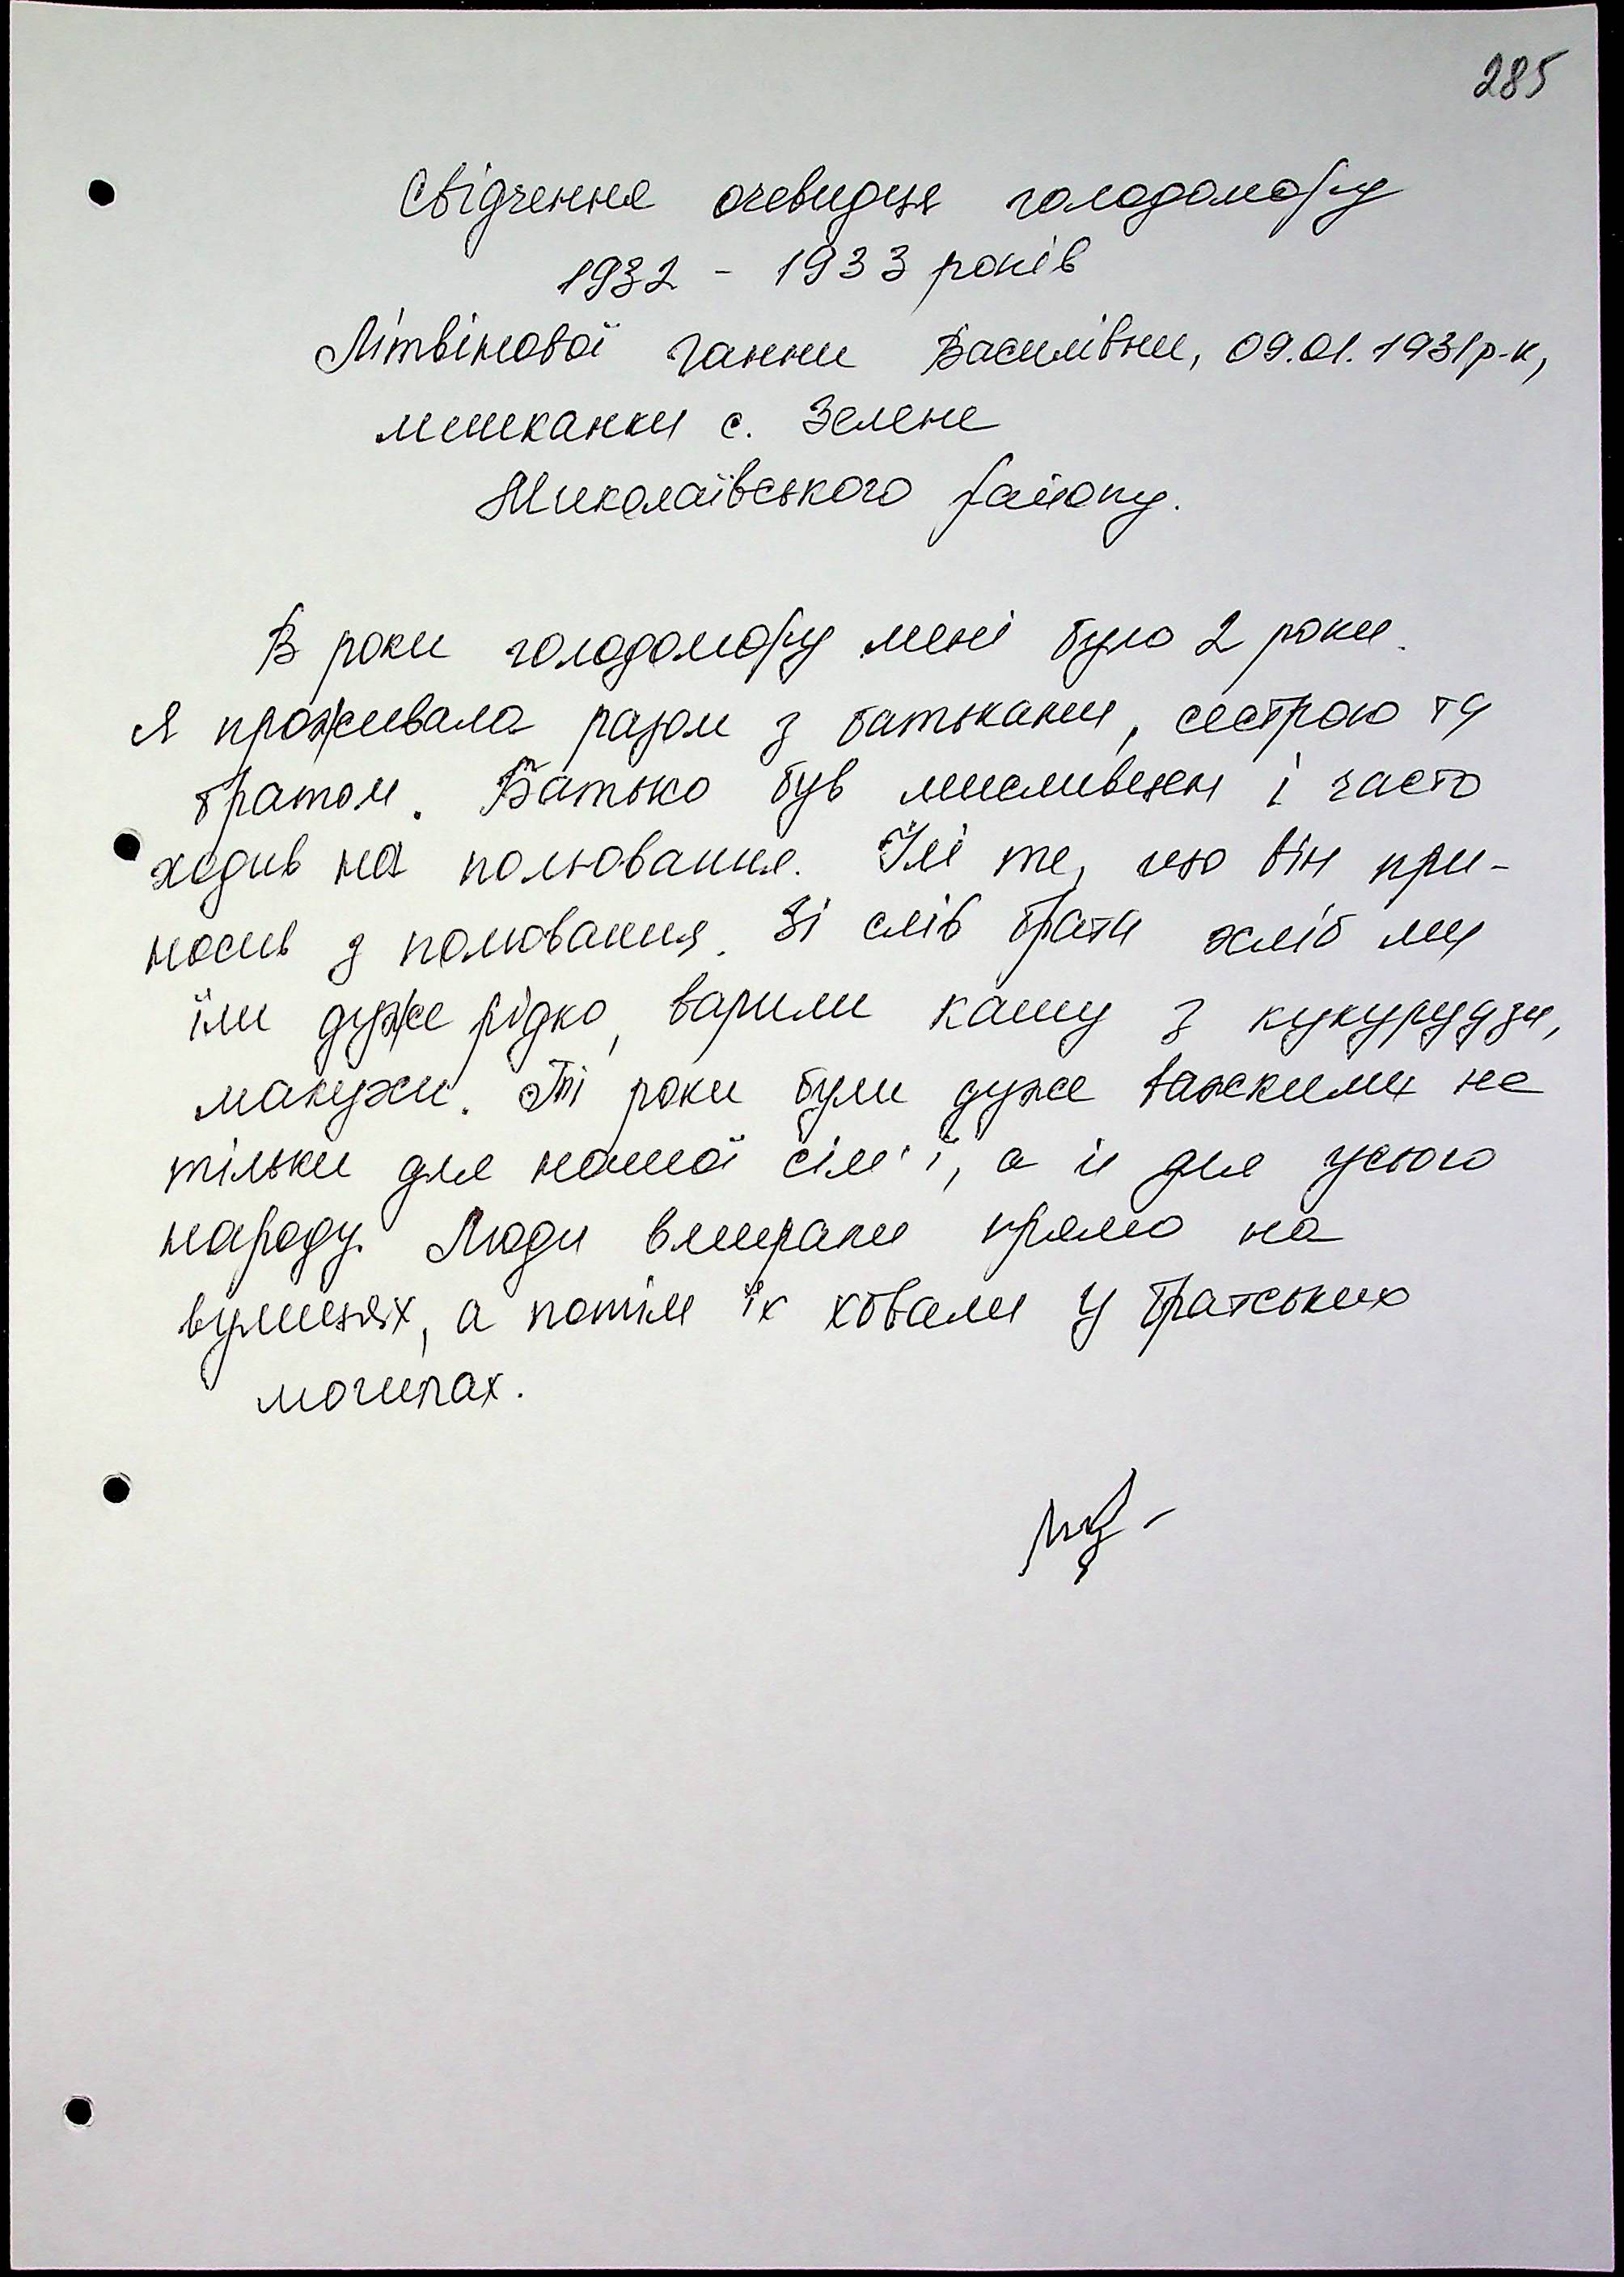 285
Свідчення очевидця голодомору
1932 - 1933 років
Літвінової Ганни Василівни, 09.01.1931р-к,
мешканки с. Зелене
Миколаївського району.
В роки голодомору мені було 2 роки.
Я проживала разом з батьками, сестрою та
братом. Батько був мисливцем і часто
ходив на полювання. Їлі те, що він при-
носив з полювання. Зі слів брата хліб ми
їли дуже рідко, варили кашу з кукурудзи,
макухи. Ті роки були дуже важкими не
тільки для нашої сім'ї, а й для усього
народу. Люди вмирали прямо на
вулицях, а потім їх ховали у братських
могилах.